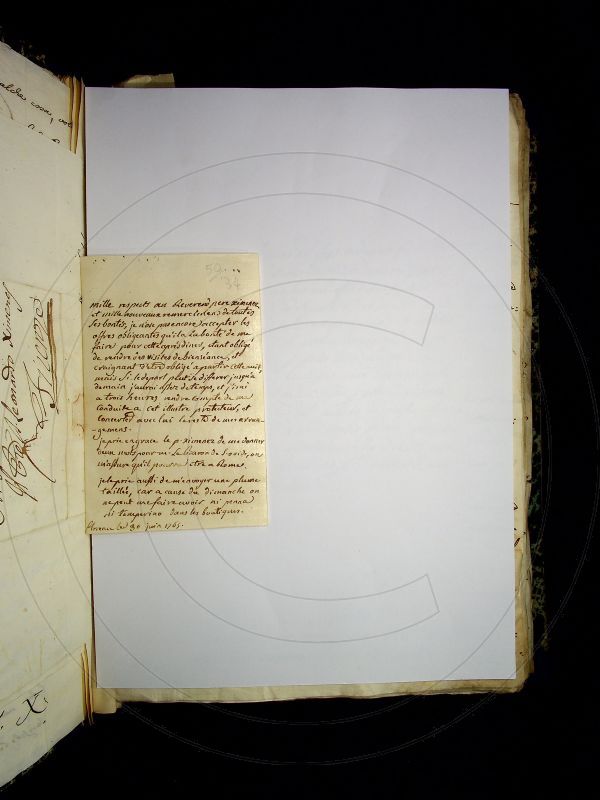 59
34
mille respects au Reverend pere ximenez
et mille nouveaux remerciemens de toutes
ses bontés, je n'ose pas encore accepter les
offres obligeantes qu'il a la bonté de me
faire pour cette apres dinée, etant obligé
de rendre des visites de bienséance, et
craignant d'etre obligé a partir cette nuit.
mais si le depart peut se differer jusqu'a
demain j'aurai assez de temps, et j'irai
a trois heures rendre compte de ma
conduite a cet illustre protecteur, et
concerter avec lui le reste de mes arran-
gemens.
je prie en grace le p. ximenez de me donner
deux mots pour mr. le Baron de on
m'assure qu'il pourra etre a Rome.
je le prie aussi de m'envoyer une plume
taillée, car a cause du dimanche on
ne peut me faire avoir ni penna
ni temperino dans les boutiques.
florence le 30 juin 1765.